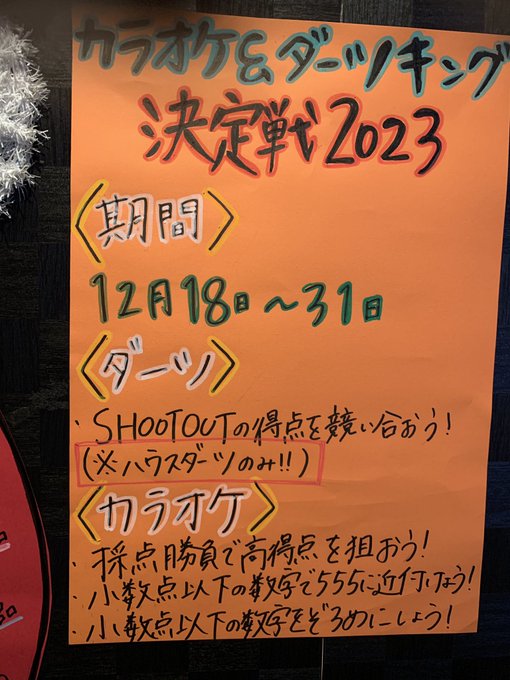 カラオケ&ダーツキング
決定戦2023
〈期間〉
12月18日〜31日
〈ダーツ〉
・SHOOTOUTの得点を競い合おう!
(※ハウスダーツのみ!!)
〈カラオケ〉
・採点勝負で高得点を狙おう!
・小数点以下の数字で555に近付けよう!
・小数点以下の数字をぞろめにしよう!